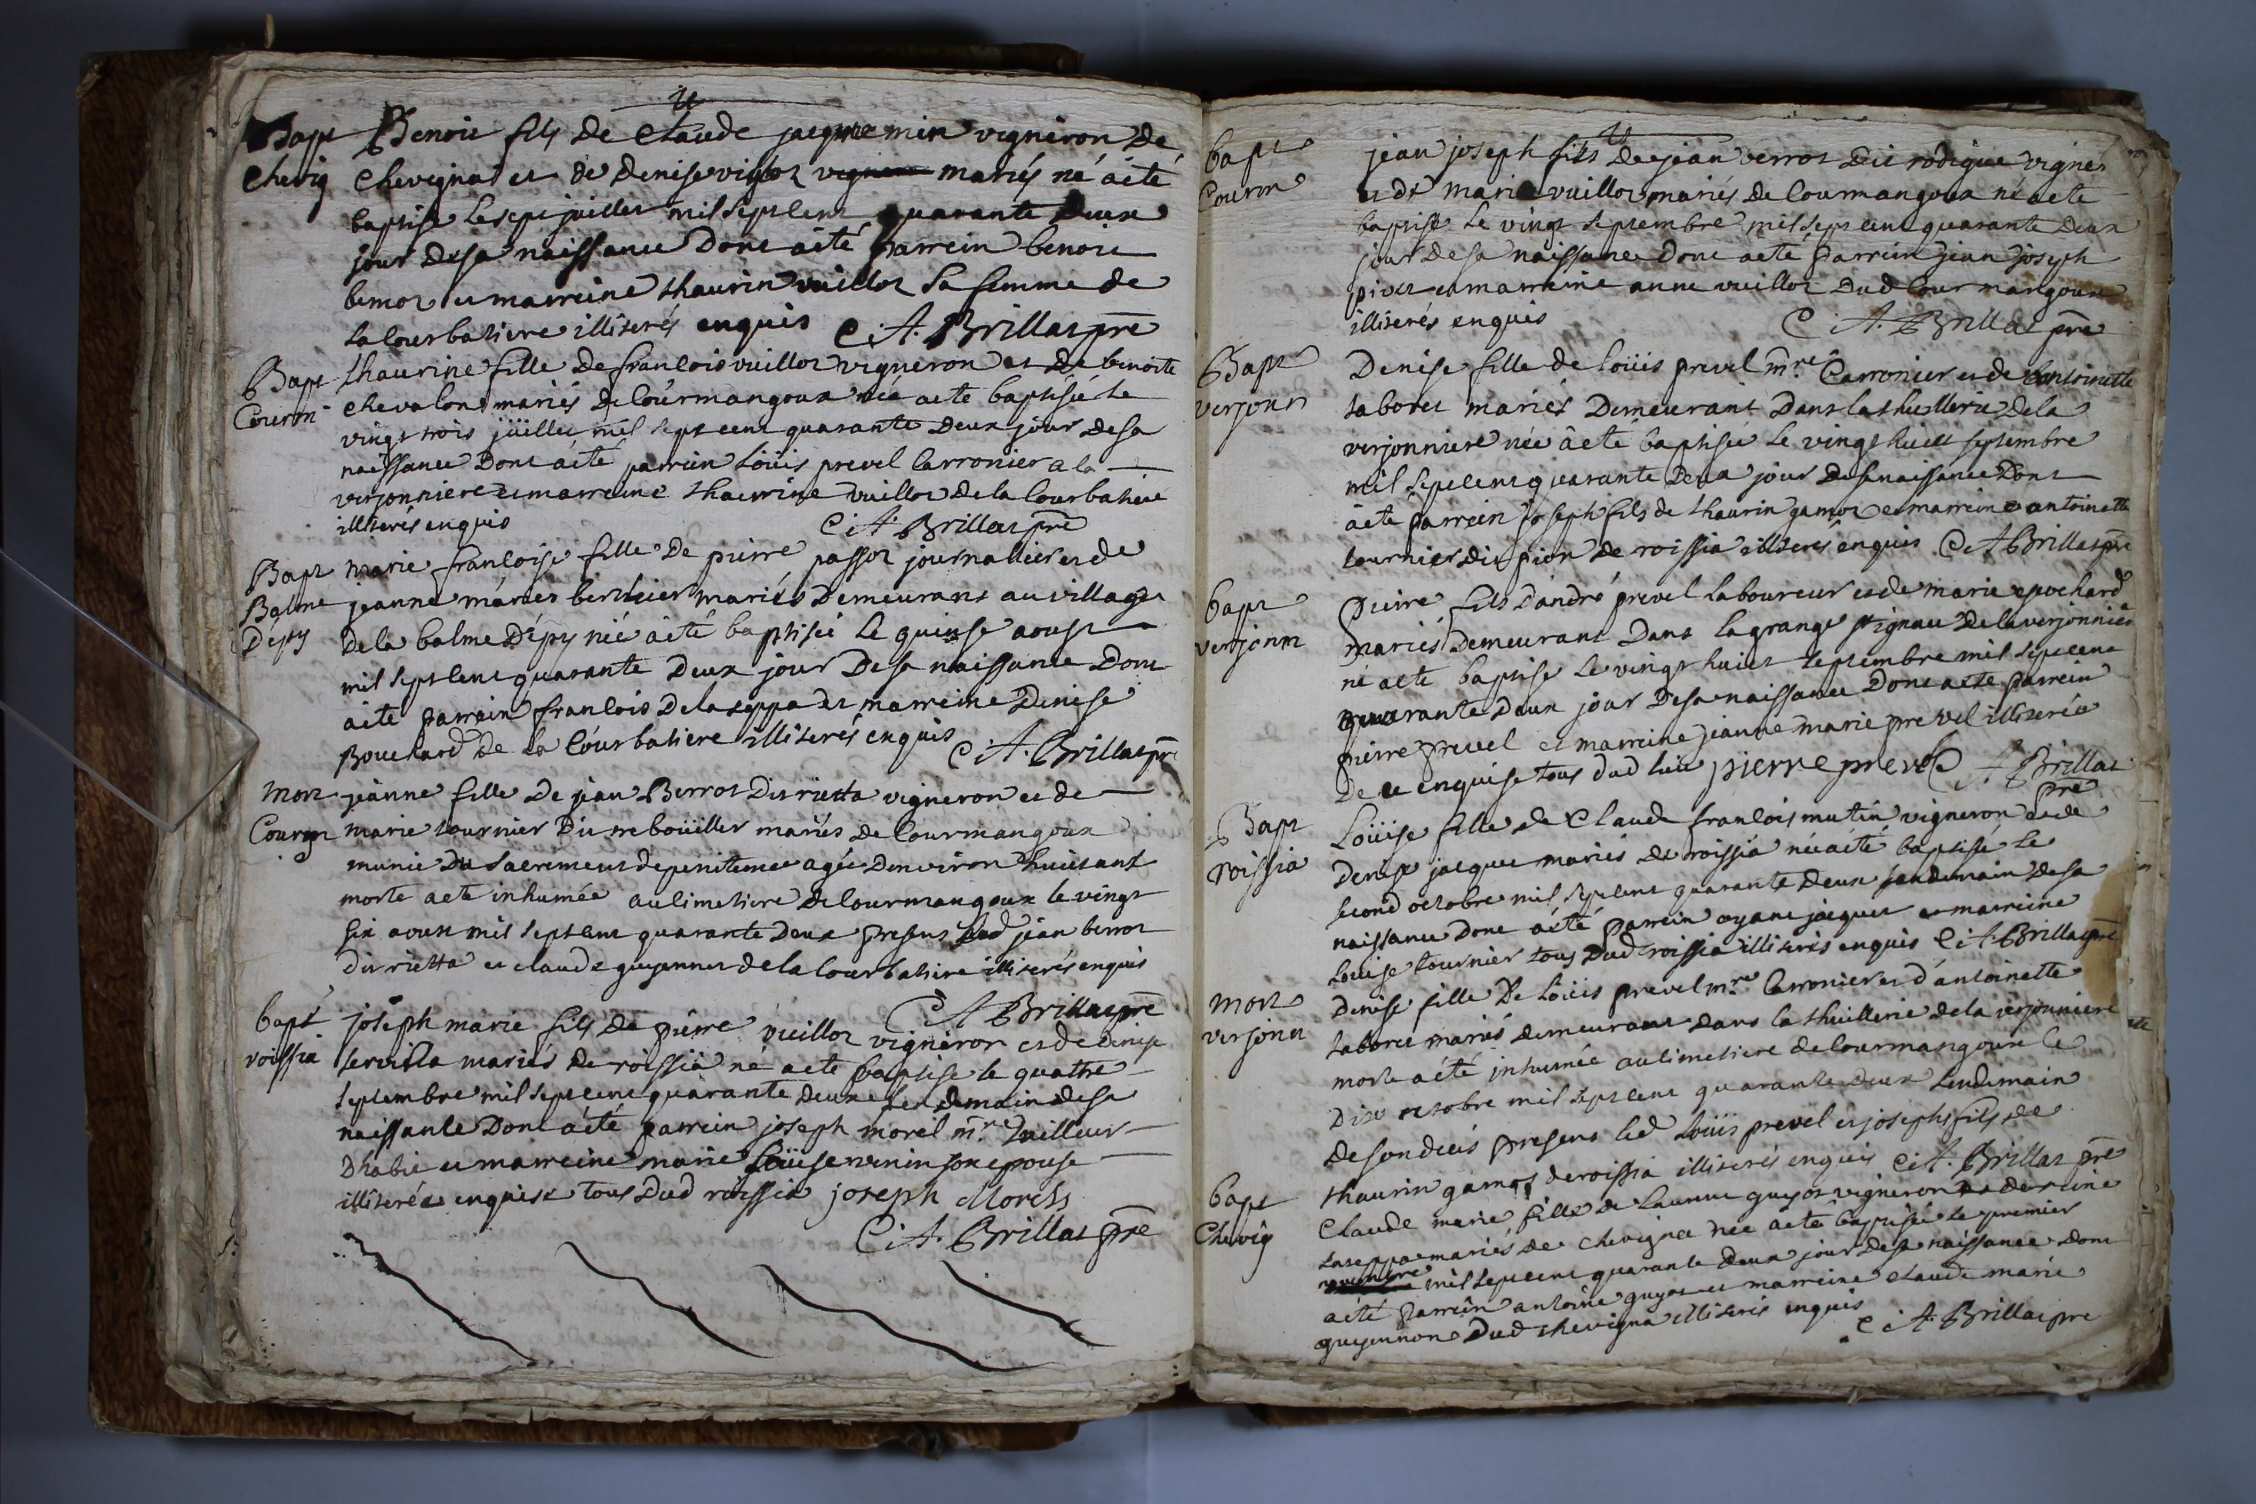 Bapt Benoit fils de Claude jacquemin vigneron de
Chevig Chevigna et de Denise vuillot mariés né a eté
baptisé le sept juillet mil sept cent quarante deux
jour de sa naissance dont a eté parrein benoit
bernot et marreine thaurine vuillot sa femme de
la Courbatiere illiterés enquis C: A: Brillat pre
Bapt thaurine fille de francois vuillot vigneron et de benoite
Courm chevalon mariés de Courmangoux née a eté baptisée le
vingt trois juillet mil sept cent quarante deux jour de sa
naissance dont a eté parrein Loüis prevel Carronier a la
verjonniere et marreine thaurine vuillot de la Courbatiere
illiterés enquis C: A: Brillat pre
Bapt marie francoise fille de pierre passot journalier et de
Balme jeanne marie berthier mariés demeurans au village
Depy de la balme d'épy née a eté baptisée le quinse aoust
mil sept cent quarante deux jour de sa naissance dont
a eté parrein francois Delaseppa et marreine Denise
Bouchard de la Courbatiere illiterés enquis C: A: Brillat pre
Mort jeanne fille de jean Berrot dit rietta vigneron et de
Courm marie tournier dit reboüiller mariés de Courmangoux
munie du sacrement de penitence agée d'environ huit ans
morte a eté inhumée au cimetiere de Courmangoux le vingt
six aoust mil sept cent quarante deux presens led jean berrot
dit rietta et claude guyennet de la Courbatiere illiterés enquis
C A Brillat pre
bapt joseph marie fils de pierre vuillot vigneron et de denise
roissia mariés de roissia né a eté baptisé le quatre
septembre mil sept cent quarante deux lendemain de sa
naissance dont a eté parrein joseph morel mre tailleur
dhabit et marreine marie Loüise venin son epouse
illiterée enquise tous dud roissia joseph Morels
C: A: Brillat pre
bapt jean joseph fils de jean verrot dit rodigue vigner
Courm et de marie vuillot mariés de Courmangoux né a eté
baptisé le vingt septembre mil sept cent quarante deux
jour de sa naissance dont a eté parrein jean joseph
et marreine anne vuillot dud Courmangoux
illiterés enquis C A: Brillat pre
Bapt Denise fille de Loüis prevel mre Carronier et de antoinette
verjonn taboret mariés demeurant dans la thuillerie de la
verjonniere née a eté baptisée le vingt huict septembre
mil sept cent quarante deux jour de sa naissance dont
a eté parrein joseph fils de thaurin gamot et marreine antoinette
tournier dit pion de roissia illiterés enquis C: A Brillat pre
bapt pierre fils d'andré prevel laboureur et de marie
verjonn mariés demeurant dans la grange de la verjonniere
né a eté baptisé le vingt huict septembre mil sept cent
quarante deux jour de sa naissance dont a eté parrein
pierre prevel et marreine jeanne marie prevel illiterée
de ce enquise tous dud lieu pierre prevel C A Brillat
pre
Bapt Loüise fille de Claude francois mutin vigneron et de
roissia Denise jacquet mariés de roissia née a eté baptisée le
second octobre mil sept cent quarante deux lendemain de sa
naissance dont a eté parrein oyant jacquet et marreine
Louise tournier tous dud roissia illiterés enquis C: A: Brillat pre
mort Denise fille de Loüis prevel mre Carronier et d'antoinette
verjonn taboret mariés demeurant dans la thuillerie de la verjonniere
morte a eté inhumée au cimetiere de Courmangoux le
dix octobre mil sept cent quarante deux lendemain
de son decés presens led Loüis prevel et joseph fils de
thaurin gamot de roissia illiterés enquis C: A: Brillat pre
bapt Claude marie fille de Laurent guyot vigneron et de reine
Chevig Laseppa mariés de chevigna née a eté baptisée le premier
novembre mil sept cent quarante deux jour de sa naissance dont
a eté parrein antoine guyot et marreine claude marie
guyennon dud chevigna illiterés enquis C: A: Brillat pre